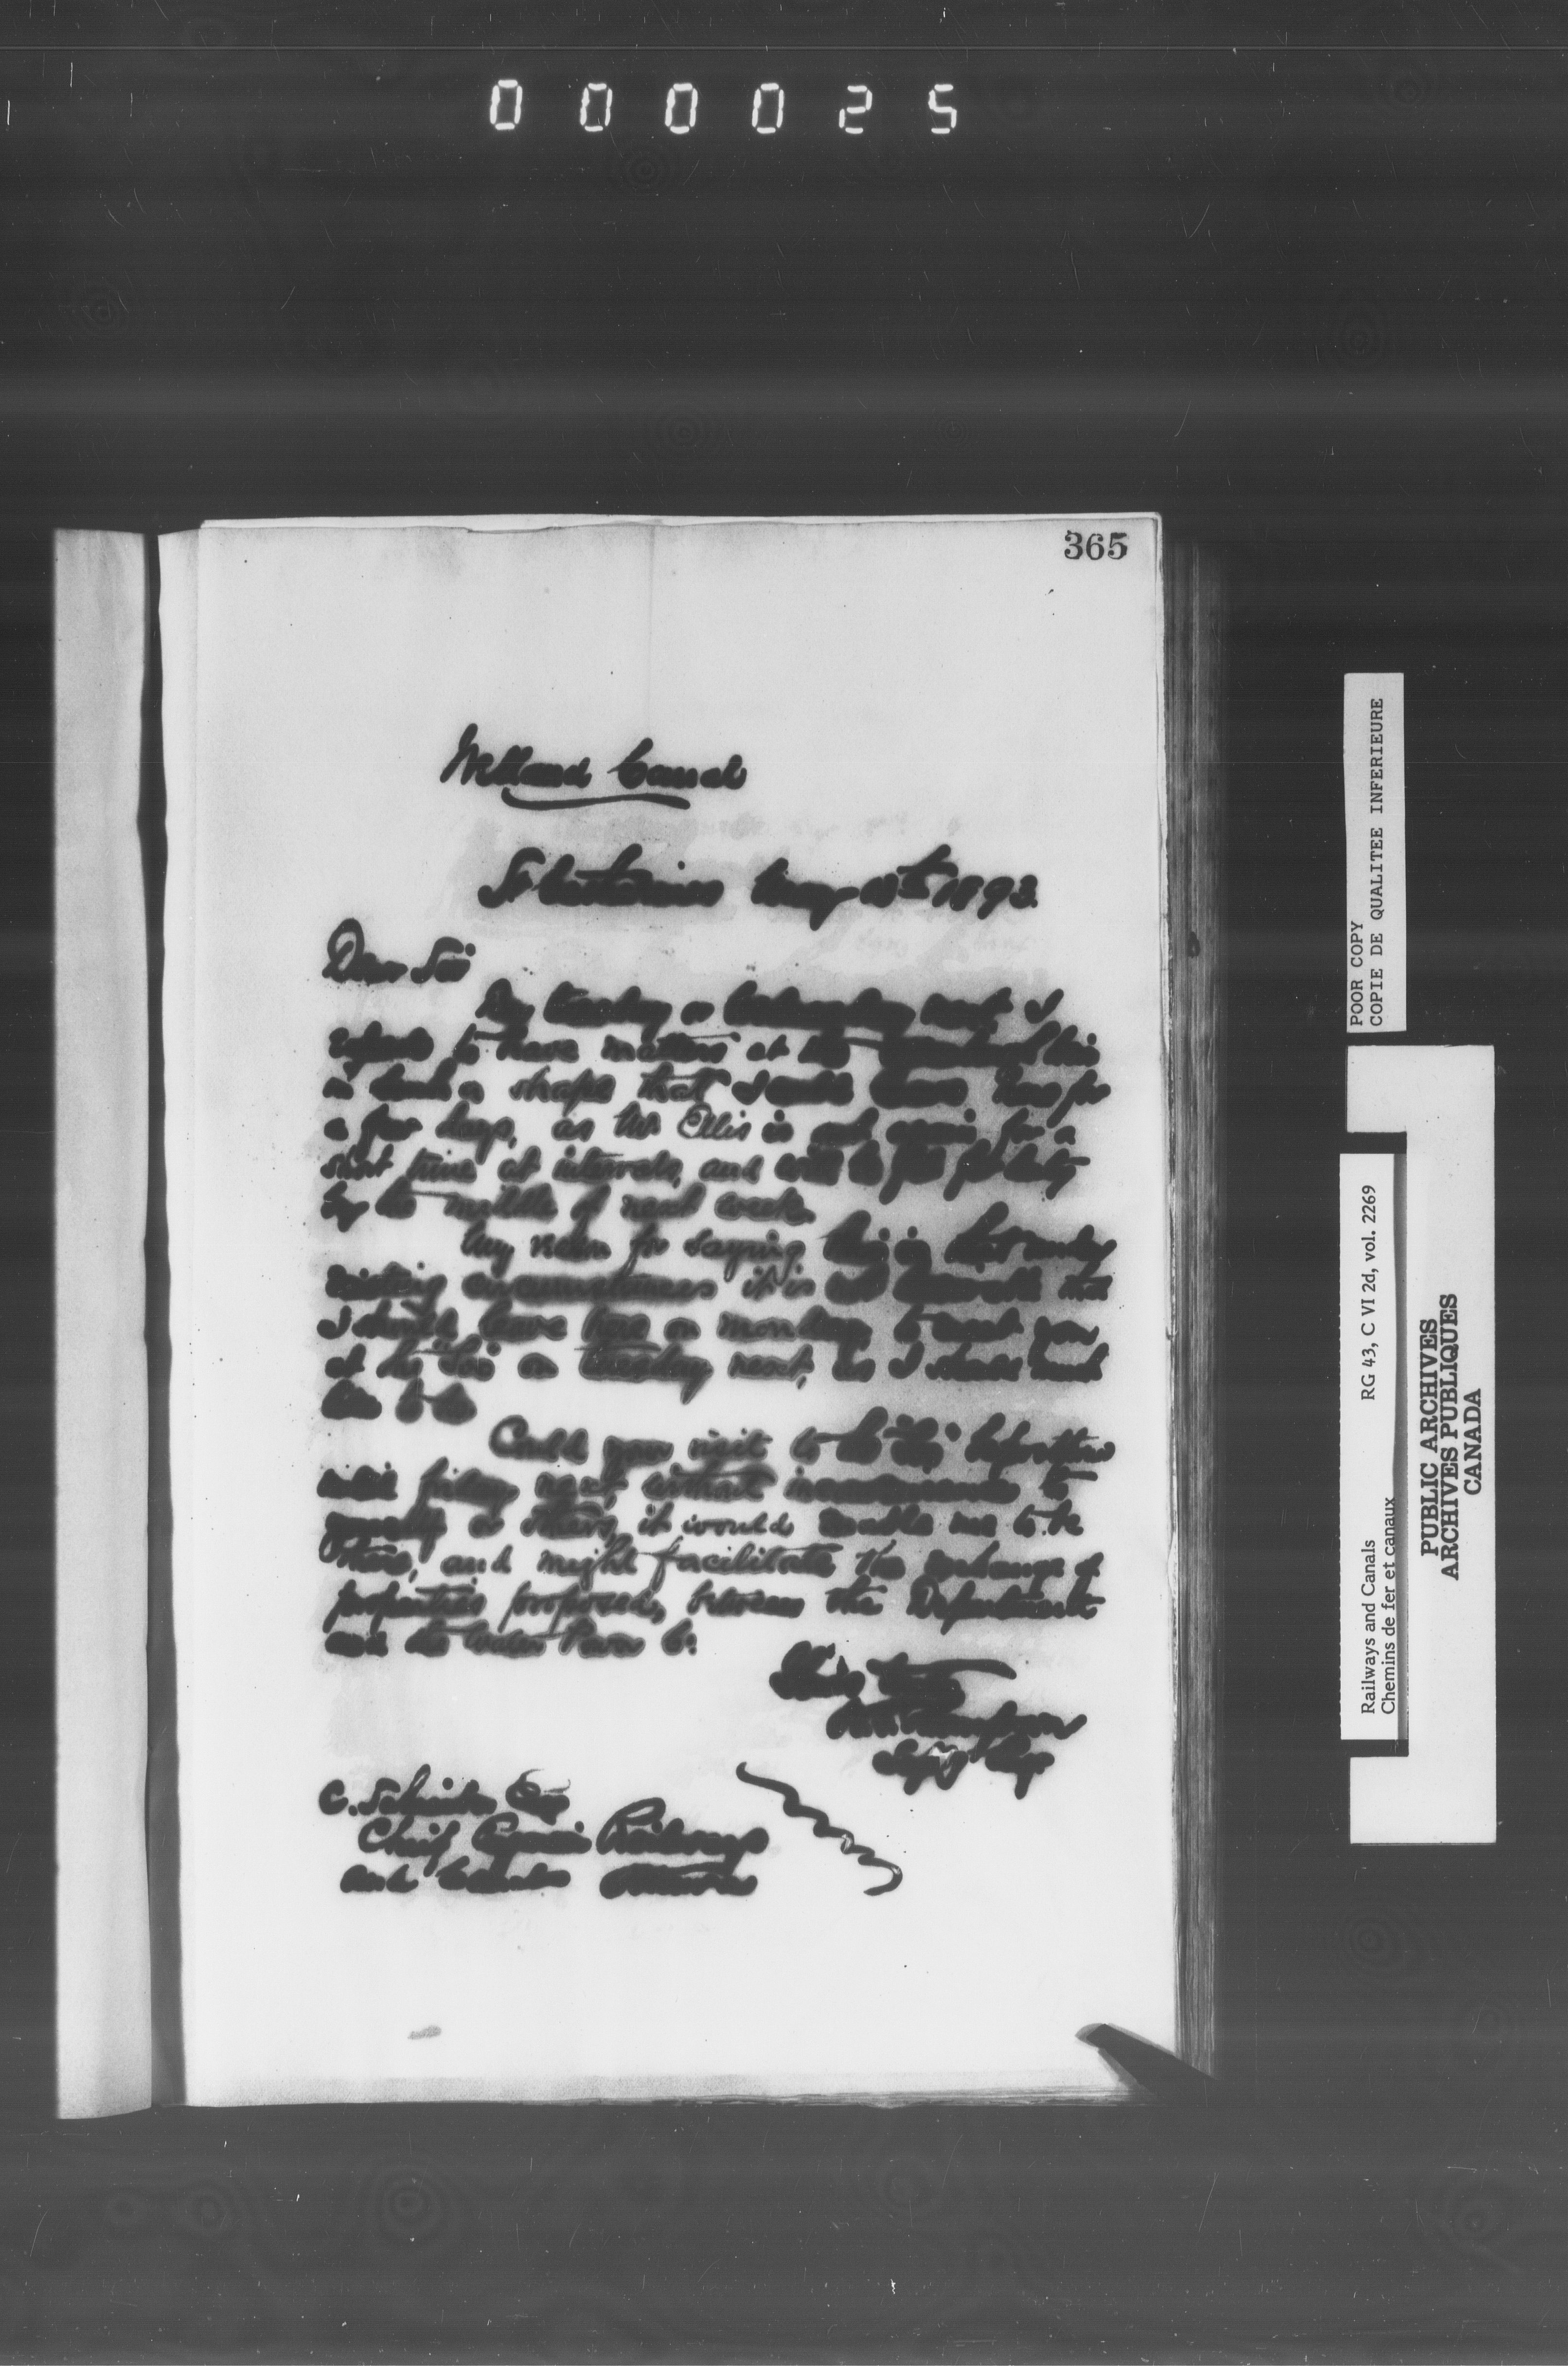 000025
365
Welland Canal
St Catharines May 18th 1893.
Dear Sir
By Tuesday or Wednesday next I
expect to have matters at the
in such a shape that I could leave here for
a few days, as Mr Ellis is out again for a
short time at intervals, and will be fit for duty
by the middle of next week.
My reason for saying this is that under
existing circumstances it is not that
I should leave here on Monday to meet you
at the "Soo" on Tuesday next, as I should much
like to do
Could your visit to the "Soo" be
until Friday next, without inconvenience to
yourself or others, it would enable me to be
there, and might facilitate the exchange of
properties proposed, between the Department
and the Water Power Co.
Yours truly
Thompson
Supg Eng.
C. Schreiber Esq
Chief Engineer Railways
and Canals Ottawa
POOR COPY
COPIE DE QUALITEE INFERIEURE
Railways and Canals RG 43, C VI 2d, vol. 2269
Chemins de fer et canaux
PUBLIC ARCHIVES
ARCHIVES PUBLIQUES
CANADA